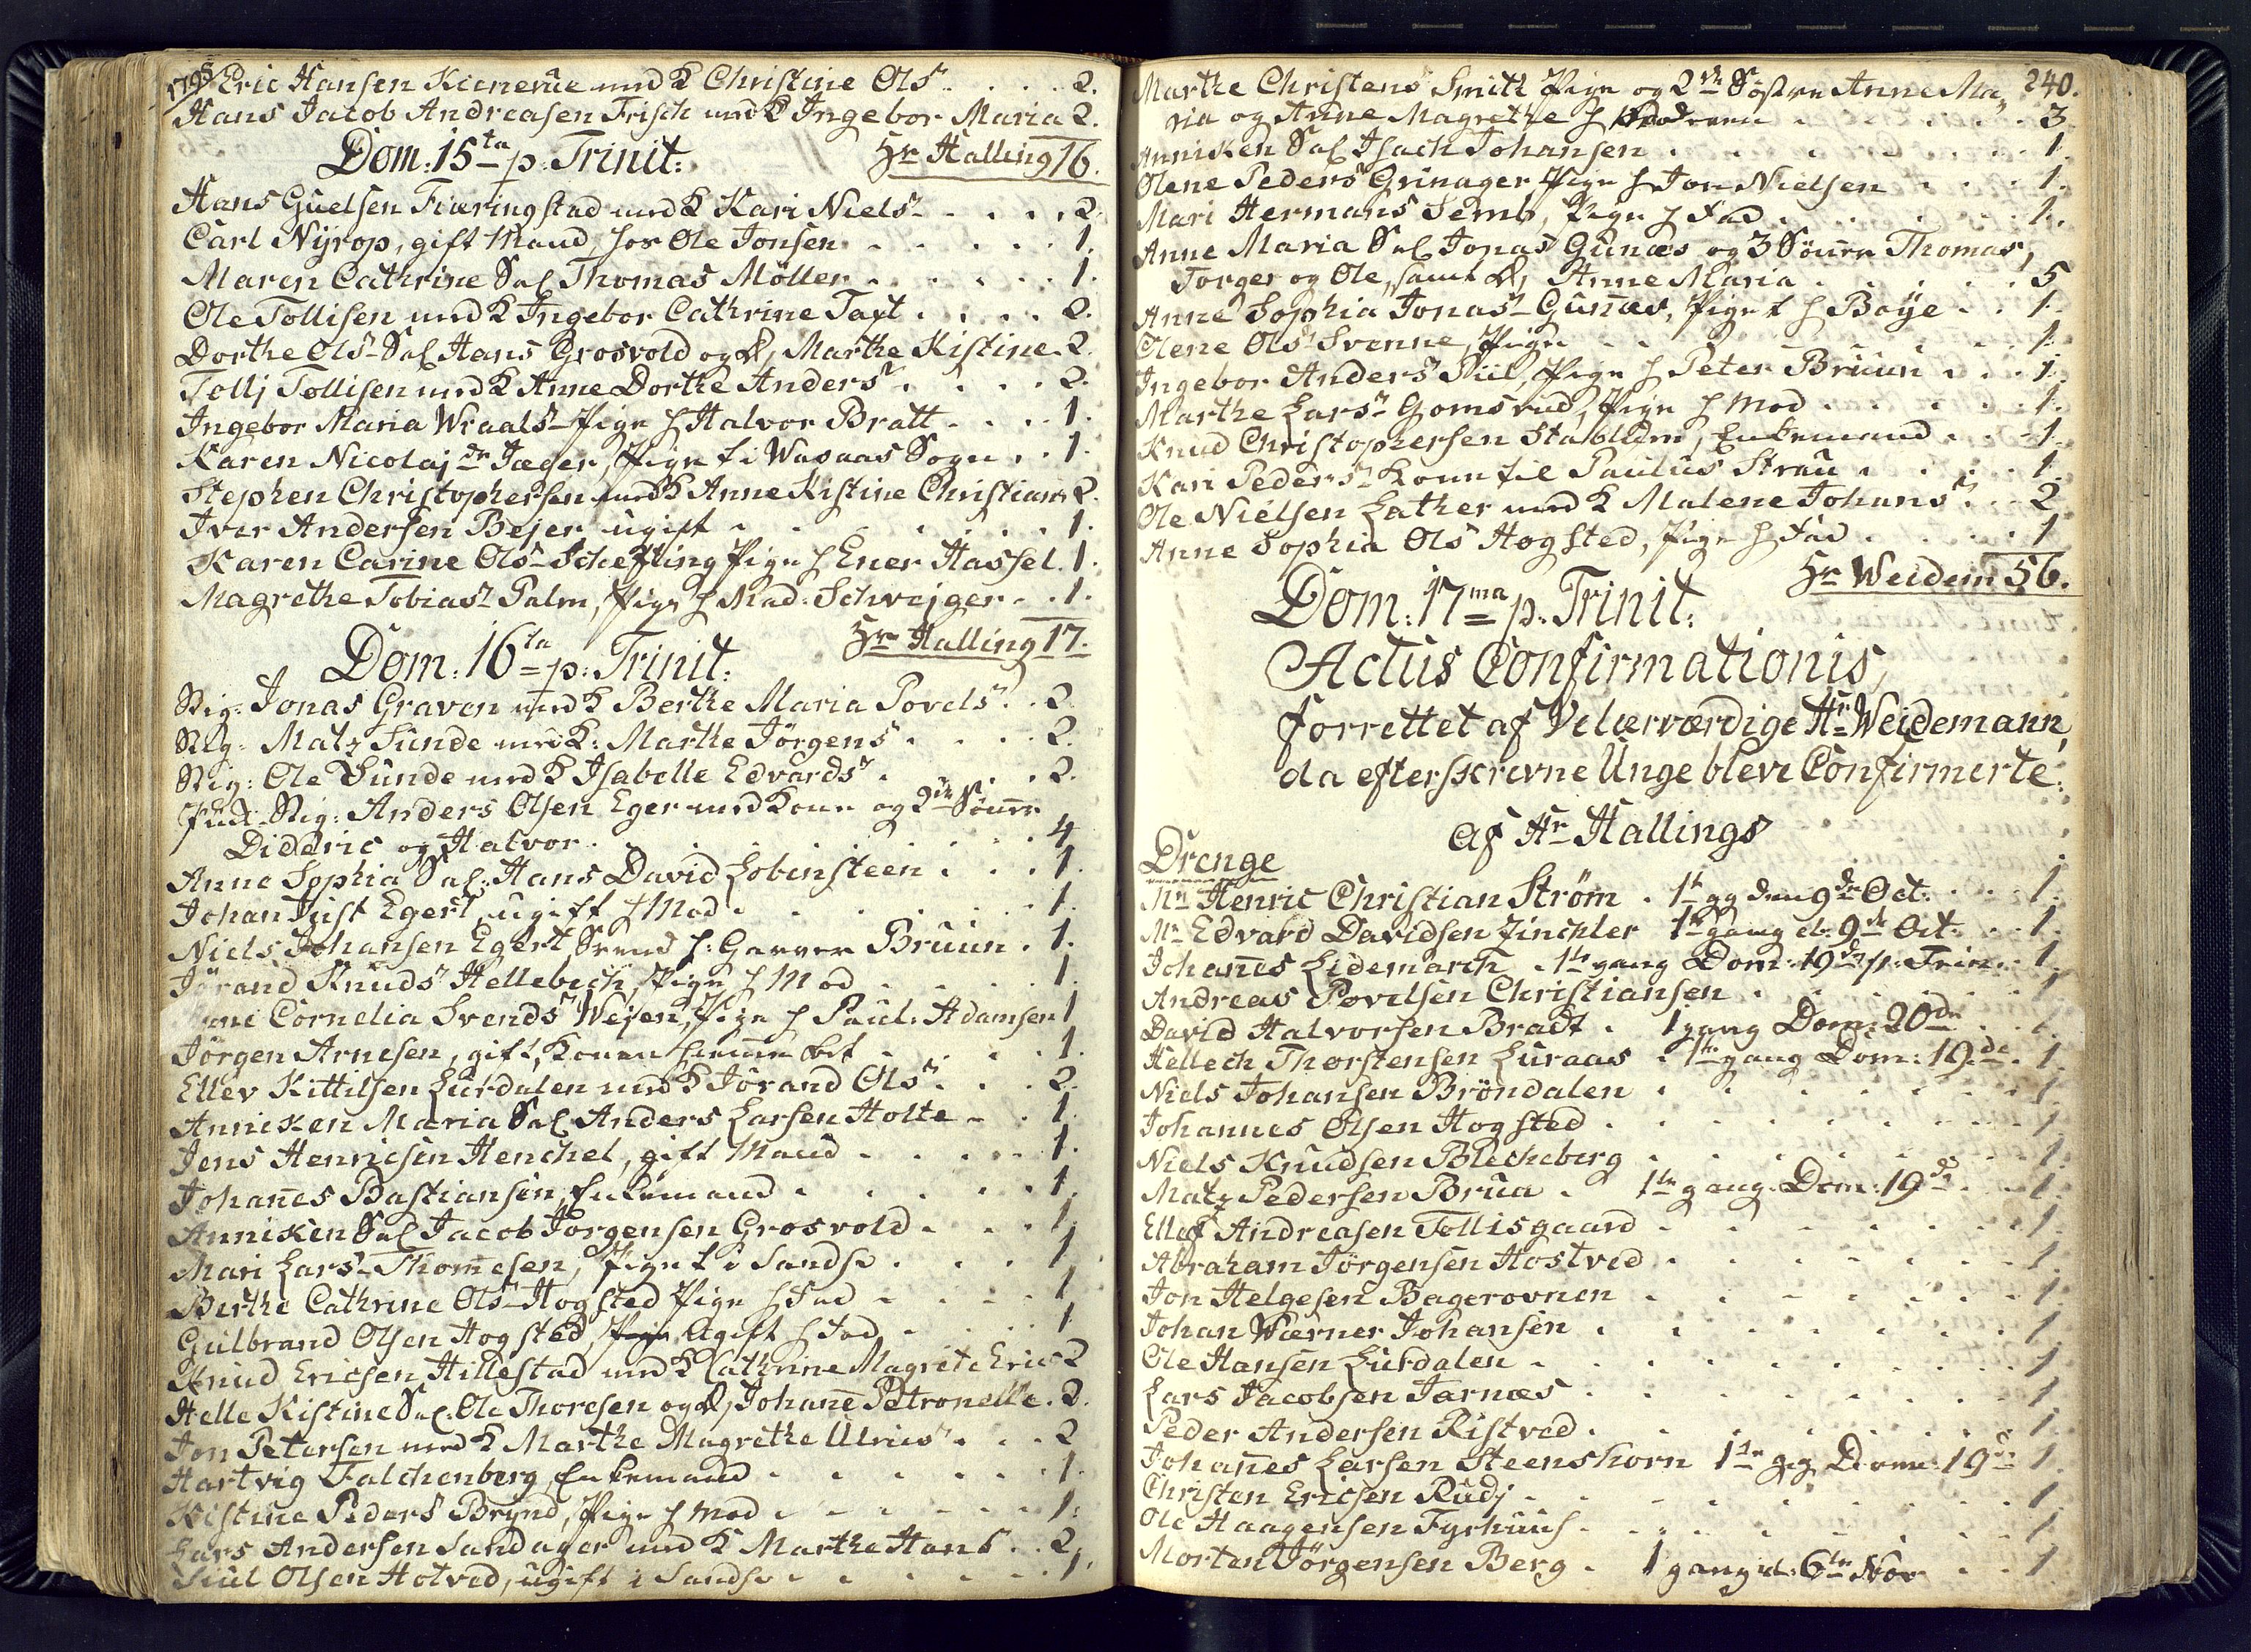 1795
Eric Hansen Kienerue med K Christine Ols . . . . 2.
Hans Jacob Andreasen Frisch med K Ingebor Maria 2.
Dom: 15ta p. Trinit: Hr Halling 16.
Hans Guelsen Fiæringstad med K Kari Niels . . . . 2.
Carl Nyrop, gift Mand, hos Ole Jonsen . . . . . 1.
Maren Cathrine Sal Thomas Möller . . . . . 1.
Ole Tollisen med K Ingebor Cathrine Taxt . . . . 2.
Dorthe Ols Sal Hans Grosvold og D, Marthe Kistine. 2.
Tollj Tollisen med K Anne Dorthe Anders . . . . 2.
Ingebor Maria Wraals Pige h Halvor Bratt . . . . 1.
Karen Nicolaj dr Jæger, Pige t i Wasaas Sogn . . 1.
Stephen Christophersen med K Anne Kistine Christians 2.
Iver Andersen Bejer ugift . . . . . . 1.
Karen Carine Ols Schefling Pige h Ener Hassel. 1.
Magrethe Tobias Palm, Pige h Mad: Schvejger . . 1.
Dom: 16ta p: Trinit: Hr Halling 17.
Stig: Jonas Graven med K Berthe Maria Povels . . 2.
Stig: Matz Sunde med K: Marthe Jörgens . . . . 2.
Stig: Ole Sunde med K Isabelle Edvards . . . . 2.
Stig: Anders Olsen Eger med Kone og 2de Sönner
Dideric og Halvor . . . . . . 4
Anne Sophia Sal: Hans David Lobinsteen . . . 1.
Johan Just Egert, ugift h Mod . . . . . 1.
Niels Johansen Egert Svend h: Garver Bruun . 1.
Jörand Knuds Hellebech, Pige h Mod . . . . 1.
Cornelia Svends Wejen, Pige h Paul: Adamsen 1
Jörgen Arnesen, gift, Konen . . . . 1.
Ellev Kittilsen Lurdalen med K Jörand Ols . . . 2.
Anniken Maria Sal Anders Larsen Holte . . 1.
Jens Henricsen Henchel, gift Mand . . . . . 1.
Johanes Bastiansen, Enkemand . . . . . 1.
Anniken Sal Jacob Jörgensen Grosvold . . . 1.
Mari Lars Thomesen, Pige t i Sands . . . . 1
Berthe Cathrine Ols Hogsted Pige h Fad . . . . 1
Gulbrand Olsen Hogsted, ugift h Fad . . . . 1
Knud Ericsen Hillestad med K Cathrine Magrete Erics 2
Helle Kistine Sal. Ole Thoresen og D, Johane Petronelle. 2.
Jon Petersen med K Marthe Magrethe Ulrics . . . 2
Hartvig Falchenberg, Enkemand . . . . . 1.
Kistine Peders Brynd, Pige h Mod . . . . . 1.
Lars Andersen Sandager med K Marthe Hans . . 2.
Olsen Hotved, ugift i Sands . . . . . 1.
240.
Marthe Christens Smith Pige og 2de Söstre Anne Ma-
ria og Anne Magrethe h . . . . . 3
Anniken Sal Isach Johansen . . . . . . 1.
Olene Peders Grinager Pige h Jon Nielsen . . . 1.
Mari Hermans Semb, Pige h Fad . . . . . 1.
Anne Maria Sal Jonas Gunæs og 3 Sönner Thomas,
Torger og Ole, samt D, Anne Maria . . . . . 5
Anne Sophia Jonas Gunæs, Pige t h Boye . . 1.
Olene Ols Svenne, Pige . . . . . . 1.
Ingebor Anders Piil, Pige h Peter Bruun . . . 1.
Marthe Lars Gomsrud, Pige h Mod . . . . . 1.
Knud Christophersen Stablum, Enkemand . . . 1.
Kari Peders Kone til Paulus Strau . . . . 1.
Ole Nielsen Lather med K Malene Johans . . 2
Anne Sophia Ols Hogsted, Pige h Fad . . . . 1
Hr Weidem 56.
Dom: 17ma p. Trinit:
Actus Confirmationis,
forrettet af Velærværdige Hr Weidemann,
da efterskrevne Unge bleve Confirmerte:
af Hr Hallings
Drenge
Mr Henric Christian Ström . 1te gg den 9de Oct. . . . 1.
Mr Edvard Davidsen Zinchler 1te gang d. 9de Oct. . . 1.
Johanes Lidemarch . 1te gang Dom: 19de p. Trin . 1.
Andreas Povelsen Christiansen . . . . . . 1
David Halvorsen Bradt . 1 gang Dom: 20de . . 1.
Hellech Thorstensen Luraas . 1te gang Dom: 19.de . 1
Niels Johansen Bröndalen . . . . . . 1
Johannes Olsen Hogsted . . . . . . 1
Niels Knudsen Blecheberg . . . . . . 1.
Matz Pedersen Brua . 1te gang Dom: 19de . . 1.
Ellef Andreasen Tollisgaard . . . . . . 1
Abraham Jörgensen Hostved . . . . . . 1.
Jon Helgesen Bagerovnen . . . . . . 1
Johan Wærner Johansen . . . . . . 1
Ole Hansen Lurdalen . . . . . . 1
Lars Jacobsen Jarnæs . . . . . . 1
Peder Andersen Ristved . . . . . . 1.
Johanes Larsen Steenshorn 1te gg Dom: 19de 1.
Christen Ericsen Rudj . . . . . . 1
Ole Haagensen Fyrhuus . . . . . . 1
Morten Jörgensen Berg . 1 gang d. 6te Nov . . 1